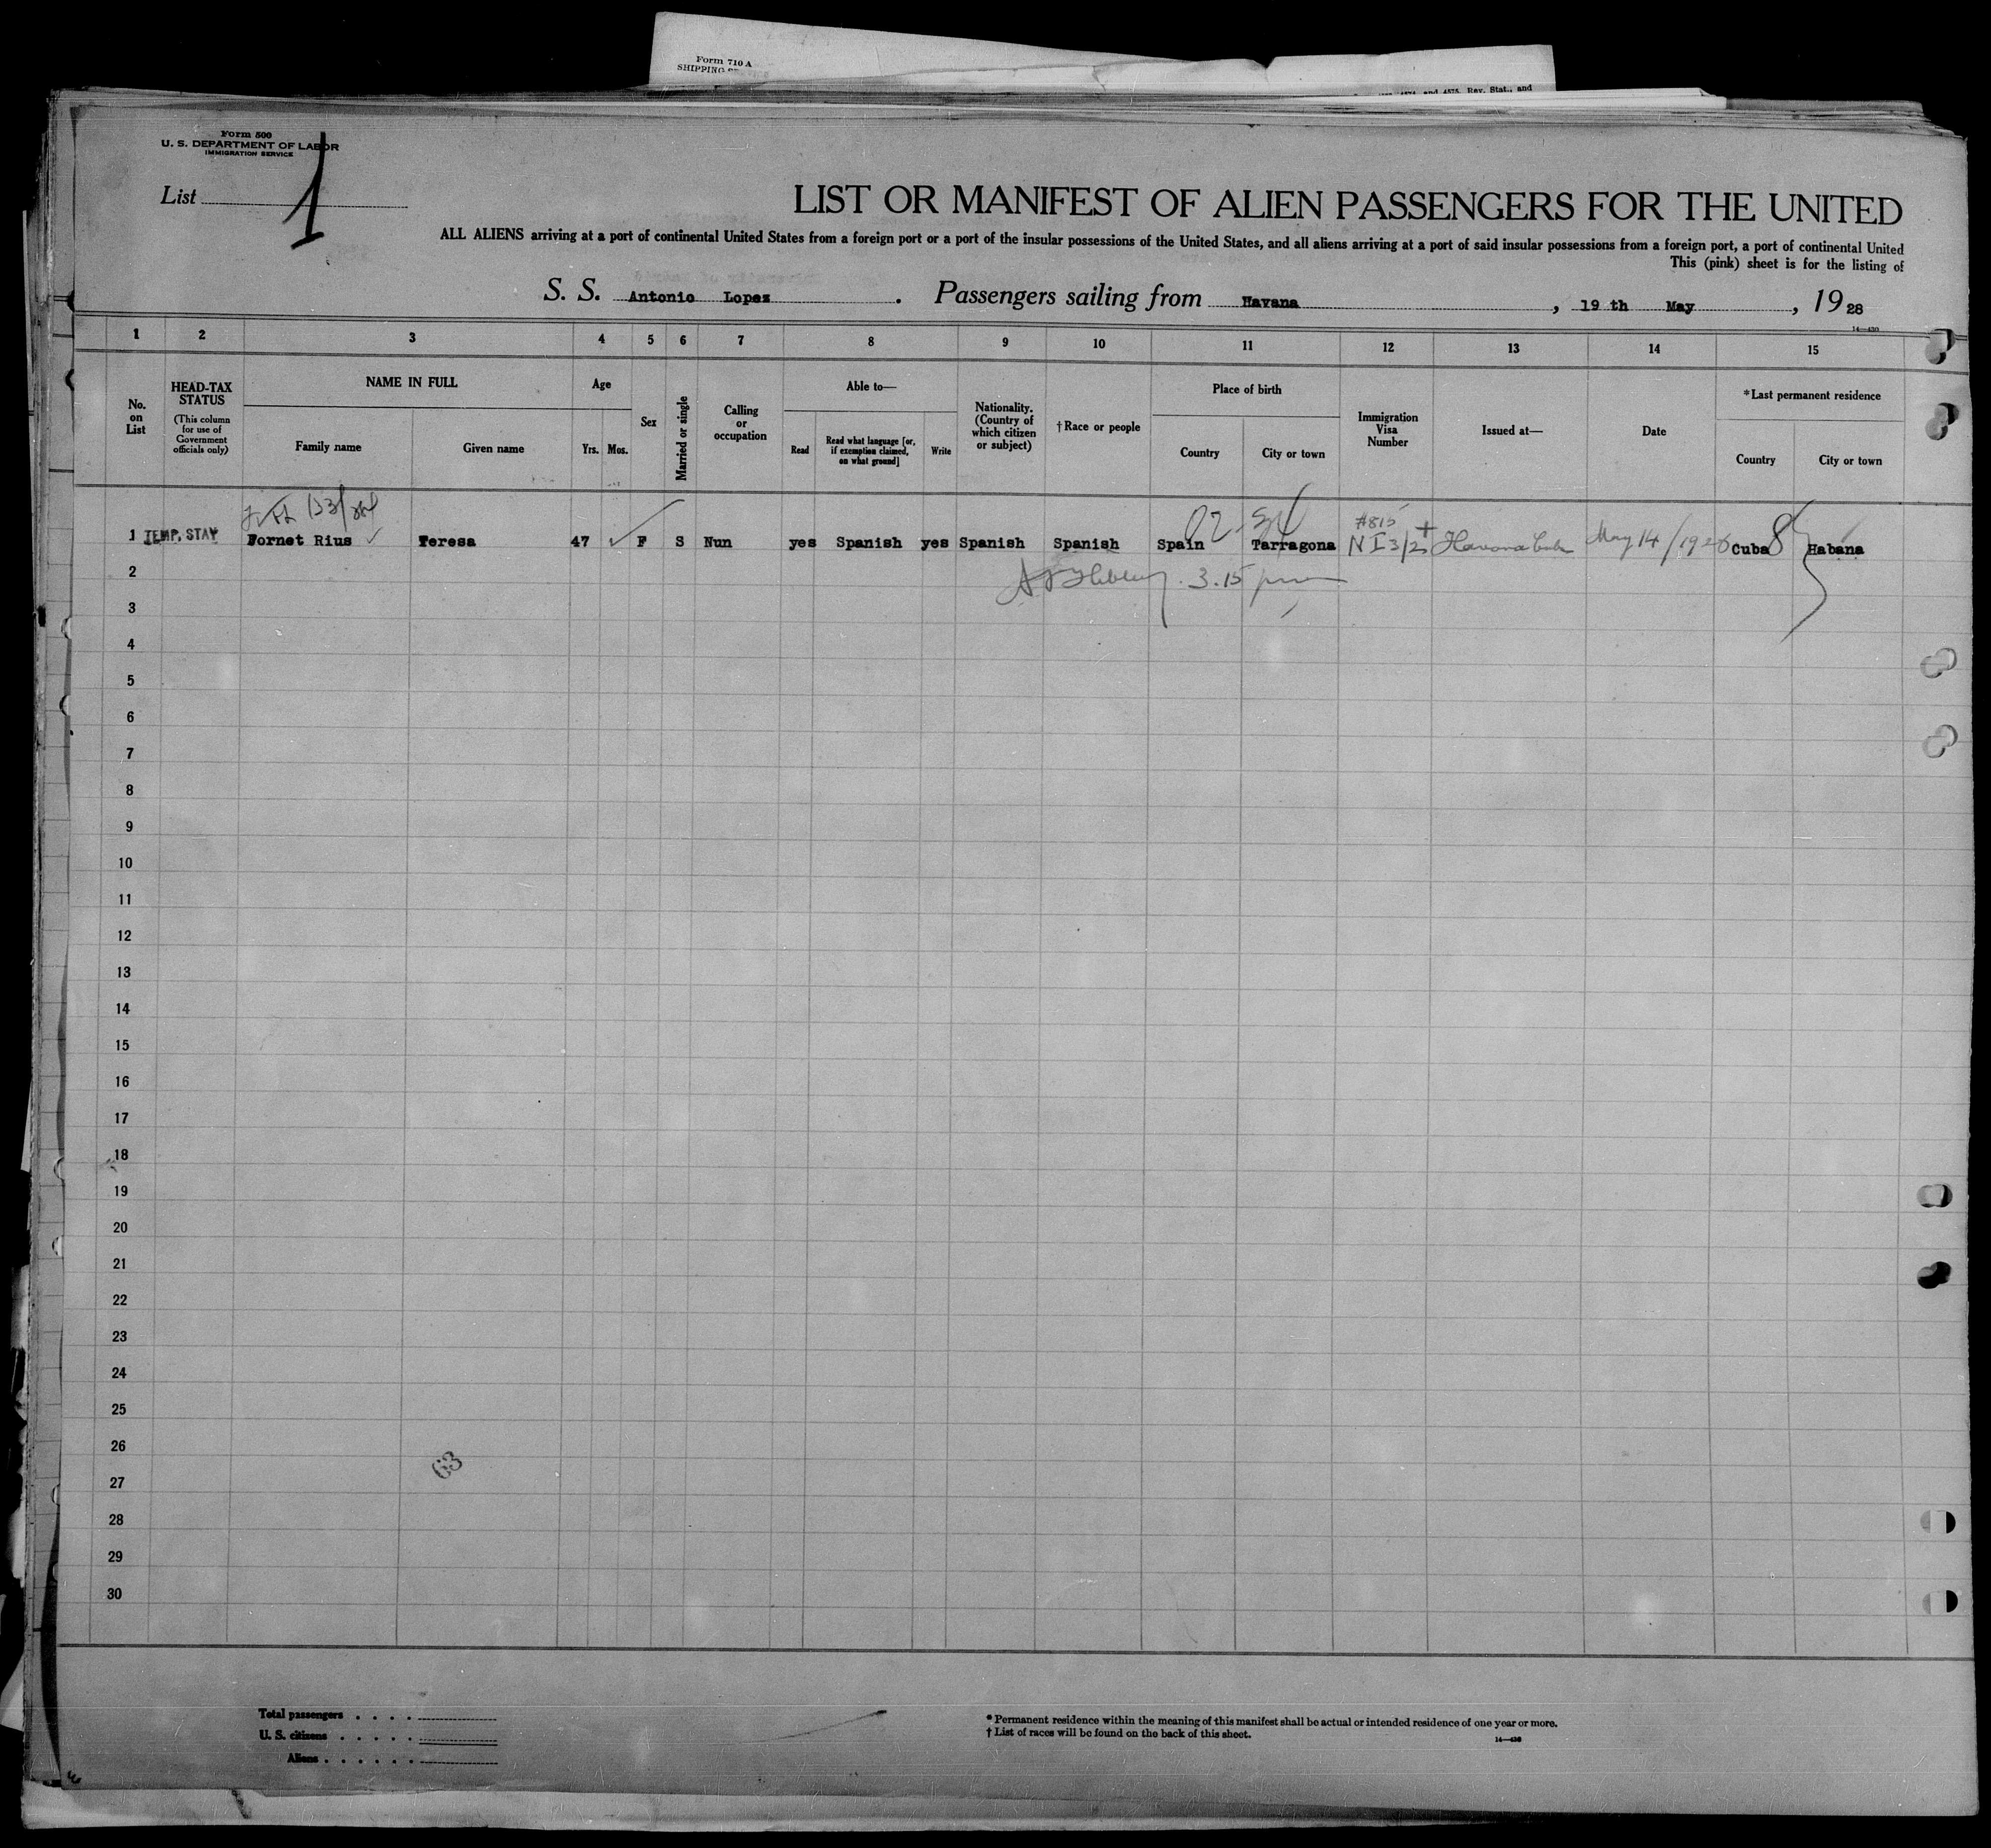 Form 710 A
SHIPPING
and 4575, Rev. Stat., and
Form 500
U. S. DEPARTMENT OF LABOR
IMMIGRATION SERVICE
List 1
LIST OR MANIFEST OF ALIEN PASSENGERS FOR THE UNITED
ALL ALIENS arriving at a port of continental United States from a foreign port or a port of the insular possessions of the United States, and all aliens arriving at a port of said insular possessions from a foreign port, a port of continental United
This (pink) sheet is for the listing of
S. S. Antonio Lopez . Passengers sailing from Havana , 19 th May , 1928
14—430
1 2 3 4 5 6 7 8 9 10 11 12 13 14 15
No. on List
HEAD-TAX STATUS
(This column for use of Government officials only)
NAME IN FULL
Family name
Given name
Age
Yrs.
Mos.
Sex
Married or single
Calling or occupation
Able to—
Read
Read what language [or, if exemption claimed, on what ground]
Write
Nationality. (Country of which citizen or subject)
† Race or people
Place of birth
Country
City or town
Immigration Visa Number
Issued at—
Date
*Last permanent residence
Country
City or town
#815
1 TEMP. STAY Fornet Rius ✓ Teresa 47 ✓ F S Nun yes Spanish yes Spanish Spanish Spain Tarragona N I 3/2 Havana Cuba May 14/1928 Cuba 8 Habana
2 3.15 pm
3
4
5
6
7
8
9
10
11
12
13
14
15
16
17
18
19
20
21
22
23
24
25
26
63
27
28
29
30
Total passengers . . . .
U. S. citizens . . . . .
Aliens . . . . . .
* Permanent residence within the meaning of this manifest shall be actual or intended residence of one year or more.
† List of races will be found on the back of this sheet.
14—430